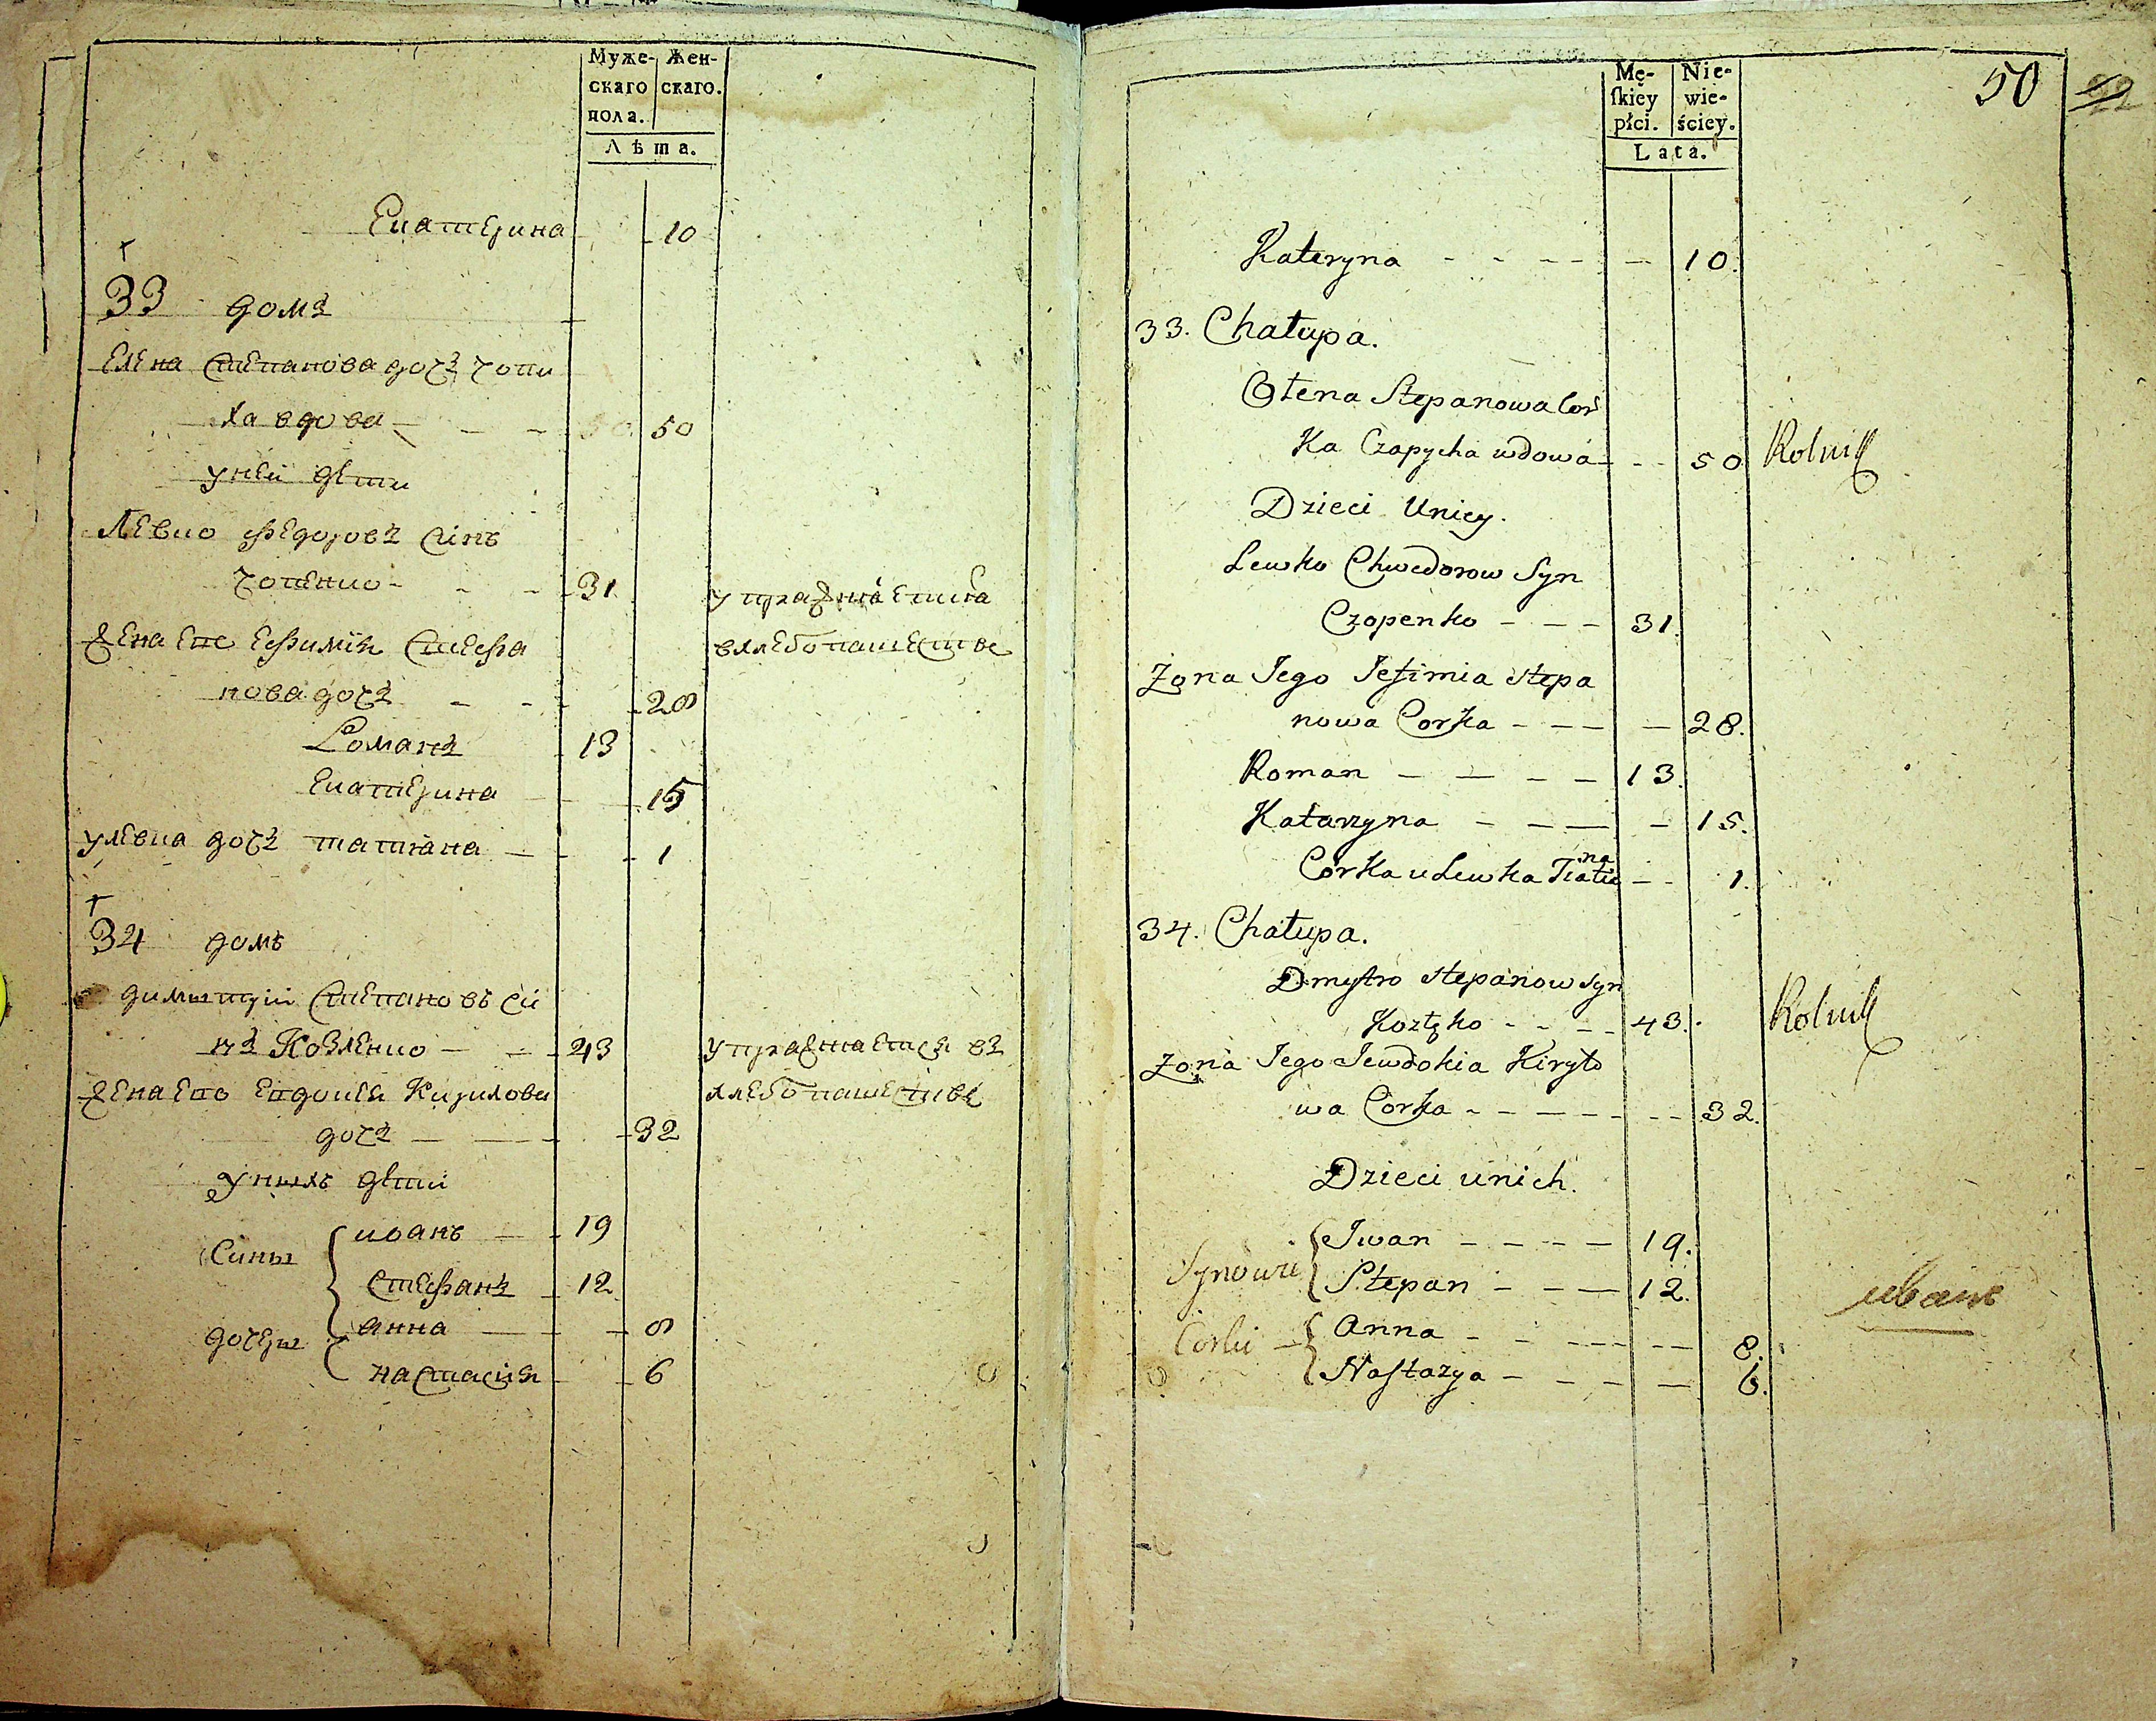 Муже- Жен-
скаго скаго.
пола.
Лѣта.
Екатерина 10
33 домъ
Елена Степанова дочъ Чопи
ха вдова 50
у ней дѣти
Левко Федоровъ синъ
Чопенко 31 упражняется
жена его Ефимія Стефа в хлебопашестве
нова дочъ 28
Романъ 13
Екатерина 15
у Левка дочъ татіана 1
34 домъ
димытрій Степановъ си
нъ Козленко 43 упражняется въ
жена его Евдокія Кирилова хлебопашествѣ
дочъ 32
у ныхъ дѣти
Сины иоанъ 19
Стефанъ 12
дочеры анна 8
настасія 6
50
Mę- Nie-
ſkiey wie-
płci. ściey.
Lata.
Kateryna 10.
33. Chałupa.
Ołena Stepanowa Cor
Ka Czapycha wdowa 50 Rolnik
Dzieci Uniey.
Lewko Chwedorow Syn
Czopenko 31.
Żona Jego Jefimia Stepa
nowa Corka 28.
Roman 13.
Katarzyna 15.
Córka u Lewka Tiatia
na 1.
34. Chałupa.
Dmytro Stepanow Syn
Kozłęko 43. Rolnik
Żona Jego Jewdokia Kiryło
wa Corka 32.
Dzieci unich.
Synowie Iwan 19.
Stepan 12.
Corki Anna 8.
Nastazya 6.